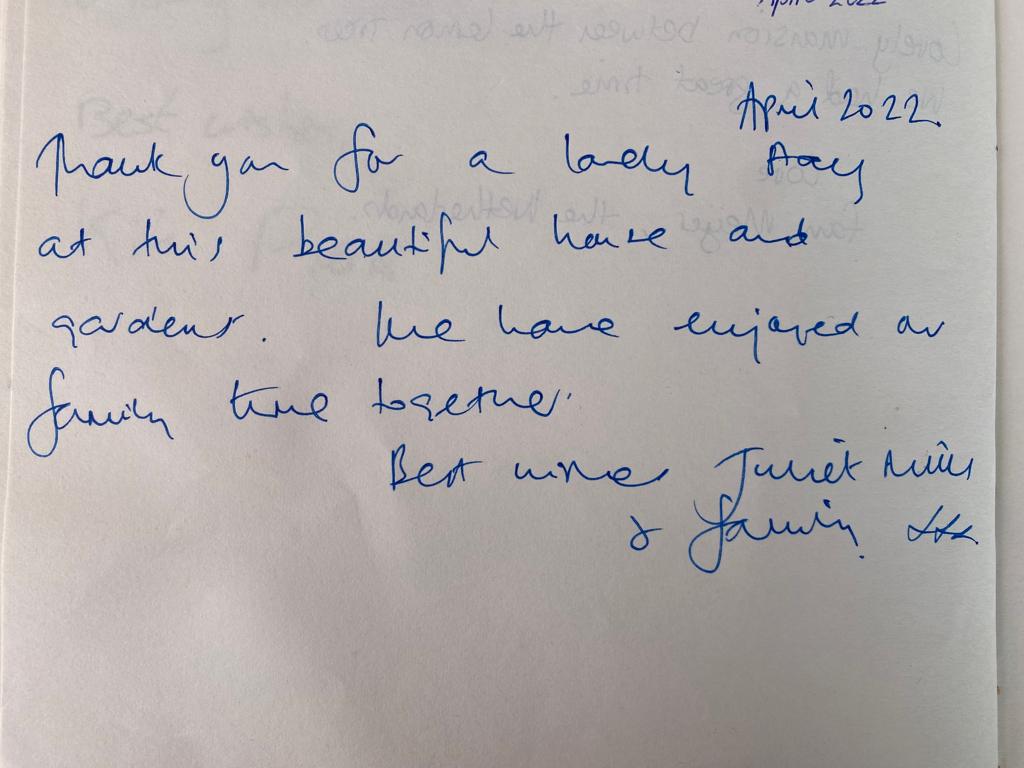 April 2022
April 2022.
Thank you for a lovely stay
at this beautiful house and
gardens. We have enjoyed our
family time together.
Best wishes Juliet
& family. xxx